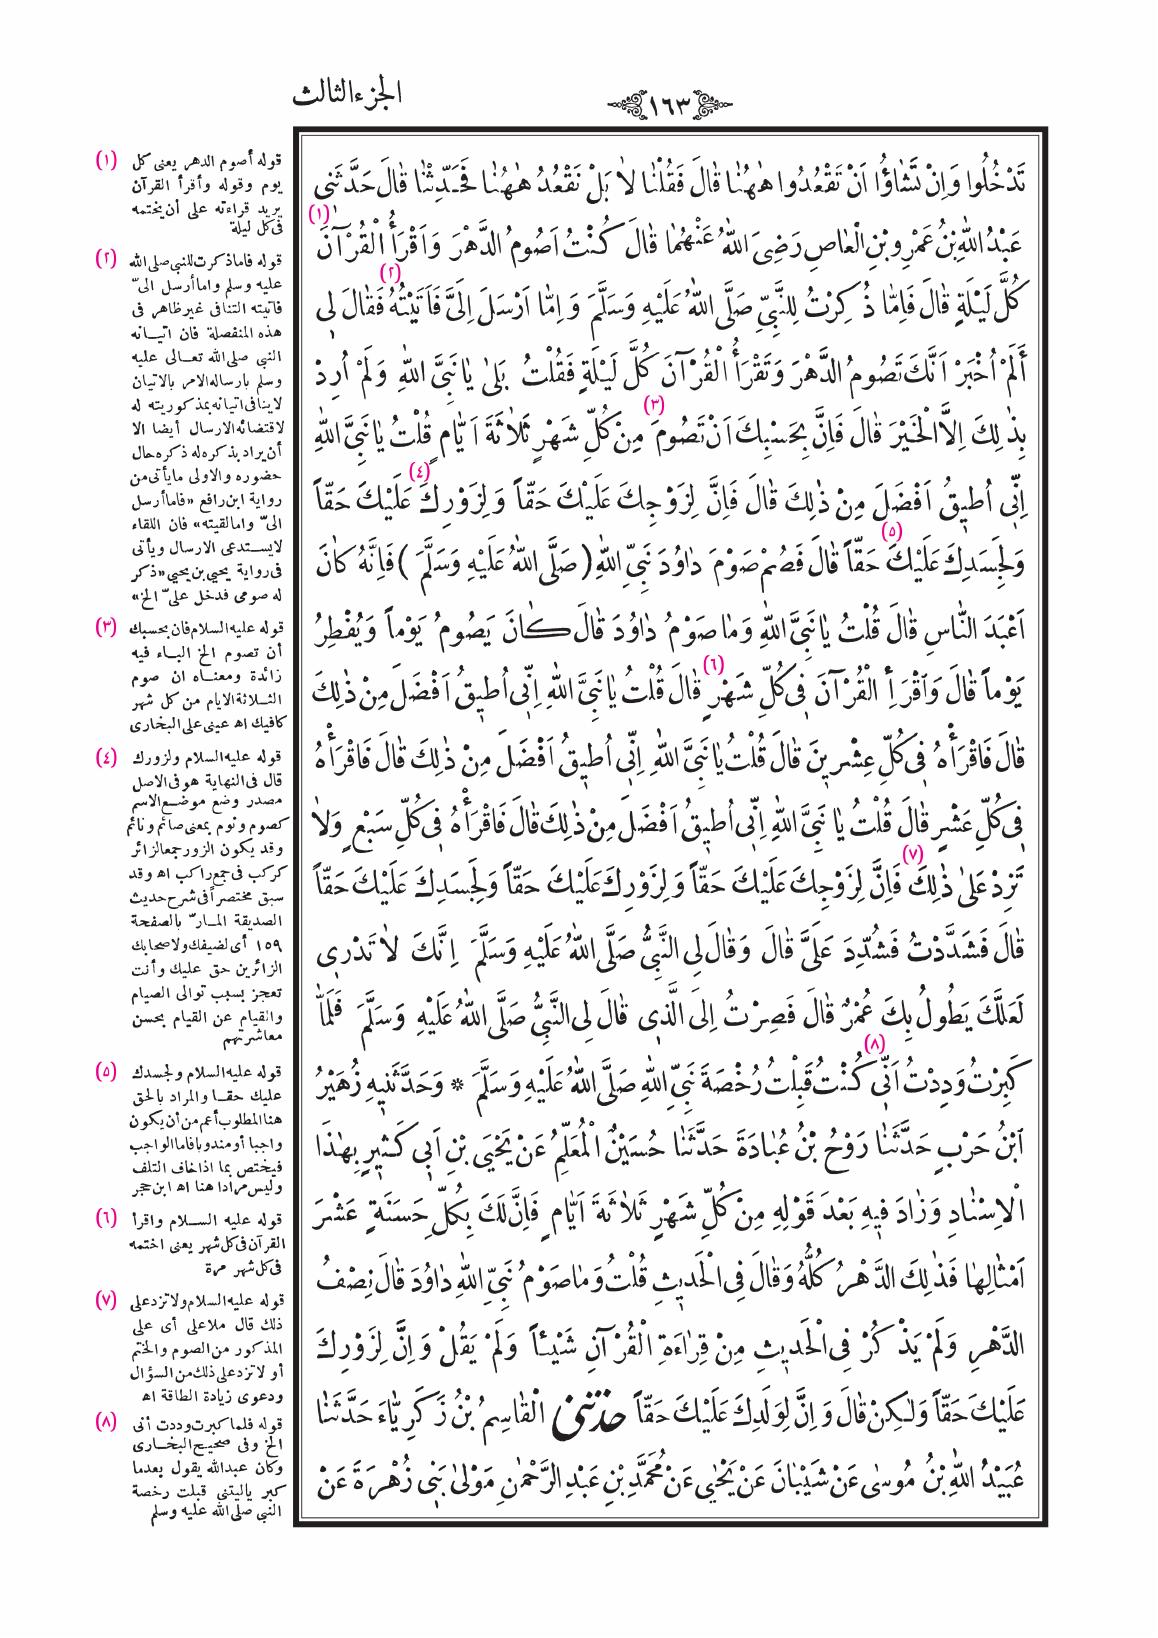 الجزء الثالث
١٦٣
تَدْخُلُوا وَاِنْ تَشَاؤُا اَنْ تَقْعُدُوا هٰهُنَا قَالَ فَقُلْنَا لَا بَلْ نَقْعُدُ هٰهُنَا فَحَدِّثْنَا قَالَ حَدَّثَنِى
عَبْدُ اللّٰهِ بْنُ عَمْرِو بْنِ الْعَاصِ رَضِىَ اللّٰهُ عَنْهُمَا قَالَ كُنْتُ اَصُومُ الدَّهْرَ وَاَقْرَأُ الْقُرْآنَ (١)
كُلَّ لَيْلَةٍ قَالَ فَاِمَّا ذُكِرْتُ لِلنَّبِيِّ صَلَّى اللّٰهُ عَلَيْهِ وَسَلَّمَ وَاِمَّا اَرْسَلَ اِلَىَّ فَاَتَيْتُهُ (٢) فَقَالَ لِى
أَلَمْ اُخْبَرْ اَنَّكَ تَصُومُ الدَّهْرَ وَتَقْرَأُ الْقُرْآنَ كُلَّ لَيْلَةٍ فَقُلْتُ بَلٰى يَا نَبِىَّ اللّٰهِ وَلَمْ اُرِدْ
بِذٰلِكَ اِلَّا الْخَيْرَ قَالَ فَاِنَّ بِحَسْبِكَ اَنْ تَصُومَ (٣) مِنْ كُلِّ شَهْرٍ ثَلَاثَةَ اَيَّامٍ قُلْتُ يَا نَبِىَّ اللّٰهِ
اِنِّى اُطيقُ اَفْضَلَ مِنْ ذٰلِكَ قَالَ فَاِنَّ لِزَوْجِكَ عَلَيْكَ حَقّاً وَلِزَوْرِكَ (٤) عَلَيْكَ حَقّاً
وَلِجَسَدِكَ عَلَيْكَ (٥) حَقّاً قَالَ فَصُمْ صَوْمَ دَاوُدَ نَبِىِّ اللّٰهِ (صَلَّى اللّٰهُ عَلَيْهِ وَسَلَّمَ) فَاِنَّهُ كَانَ
اَعْبَدَ النَّاسِ قَالَ قُلْتُ يَا نَبِىَّ اللّٰهِ وَمَا صَوْمُ دَاوُدَ قَالَ كَانَ يَصُومُ يَوْماً وَيُفْطِرُ
يَوْماً قَالَ وَاقْرَأِ الْقُرْآنَ فِى كُلِّ شَهْرٍ (٦) قَالَ قُلْتُ يَا نَبِىَّ اللّٰهِ اِنِّى اُطيقُ اَفْضَلَ مِنْ ذٰلِكَ
قَالَ فَاقْرَأْهُ فِى كُلِّ عِشْرينَ قَالَ قُلْتُ يَا نَبِىَّ اللّٰهِ اِنِّى اُطيقُ اَفْضَلَ مِنْ ذٰلِكَ قَالَ فَاقْرَأْهُ
فِى كُلِّ عَشْرٍ قَالَ قُلْتُ يَا نَبِىَّ اللّٰهِ اِنِّى اُطيقُ اَفْضَلَ مِنْ ذٰلِكَ قَالَ فَاقْرَأْهُ فِى كُلِّ سَبْعٍ وَلَا
تَزِدْ عَلٰى ذٰلِكَ (٧) فَاِنَّ لِزَوْجِكَ عَلَيْكَ حَقّاً وَلِزَوْرِكَ عَلَيْكَ حَقّاً وَلِجَسَدِكَ عَلَيْكَ حَقّاً
قَالَ فَشَدَّدْتُ فَشُدِّدَ عَلَىَّ قَالَ وَقَالَ لِى النَّبِىُّ صَلَّى اللّٰهُ عَلَيْهِ وَسَلَّمَ اِنَّكَ لَا تَدْرى
لَعَلَّكَ يَطُولُ بِكَ عُمْرٌ قَالَ فَصِرْتُ اِلَى الَّذى قَالَ لِى النَّبِىُّ صَلَّى اللّٰهُ عَلَيْهِ وَسَلَّمَ فَلَمَّا
كَبِرْتُ وَدِدْتُ اَنِّى (٨) كُنْتُ قَبِلْتُ رُخْصَةَ نَبِىِّ اللّٰهِ صَلَّى اللّٰهُ عَلَيْهِ وَسَلَّمَ * وَحَدَّثَنيهِ زُهَيْرُ
ابْنُ حَرْبٍ حَدَّثَنَا رَوْحُ بْنُ عُبَادَةَ حَدَّثَنَا حُسَيْنٌ الْمُعَلِّمُ عَنْ يَحْيَى بْنِ اَبى كَثيرٍ بِهٰذَا
الْاِسْنَادِ وَزَادَ فيهِ بَعْدَ قَوْلِهِ مِنْ كُلِّ شَهْرٍ ثَلَاثَةَ اَيَّامٍ فَاِنَّ لَكَ بِكُلِّ حَسَنَةٍ عَشْرَ
اَمْثَالِهَا فَذٰلِكَ الدَّهْرُ كُلُّهُ وَقَالَ فِى الْحَديثِ قُلْتُ وَمَا صَوْمُ نَبِىِّ اللّٰهِ دَاوُدَ قَالَ نِصْفُ
الدَّهْرِ وَلَمْ يَذْكُرْ فِى الْحَديثِ مِنْ قِرَاءَةِ الْقُرْآنِ شَيْئاً وَلَمْ يَقُلْ وَاِنَّ لِزَوْرِكَ
عَلَيْكَ حَقّاً وَلٰكِنْ قَالَ وَاِنَّ لِوَلَدِكَ عَلَيْكَ حَقّاً حدثنى الْقَاسِمُ بْنُ زَكَرِيَّاءَ حَدَّثَنَا
عُبَيْدُ اللّٰهِ بْنُ مُوسٰى عَنْ شَيْبَانَ عَنْ يَحْيٰى عَنْ مُحَمَّدِ بْنِ عَبْدِ الرَّحْمٰنِ مَوْلٰى بَنى زُهْرَةَ عَنْ
(١) قوله أصوم الدهر يعنى كل
يوم وقوله وأقرأ القرآن
يريد قراءته على أن يختمه
فى كل ليلة
(٢) قوله فاما ذكرت للنبى صلى الله
عليه وسلم واما أرسل الىّ
فاتيته التنافى غير ظاهر فى
هذه المنفصلة فان اتيانه
النبى صلى الله تعالى عليه
وسلم بارساله الامر بالاتيان
لاينافى اتيانه بمذكوريته له
لاقتضائه الارسال أيضا الا
أن يراد بذكره له ذكره حال
حضوره والاولى ما يأتى من
رواية ابن رافع «فاما أرسل
الىّ واما لقيته» فان اللقاء
لايستدعى الارسال ويأتى
فى رواية يحيى بن يحيى «ذكر
له صومى فدخل علىّ الخ»
(٣) قوله عليه السلام فان بحسبك
أن تصوم الخ الباء فيه
زائدة ومعناه ان صوم
الثلاثة الايام من كل شهر
كافيك اه عينى على البخارى
(٤) قوله عليه السلام ولزورك
قال فى النهاية هو فى الاصل
مصدر وضع موضع الاسم
كصوم ونوم بمعنى صائم ونائم
وقد يكون الزور جمعا لزائر
كركب فى جمع راكب اه وقد
سبق مختصراً فى شرح حديث
الصديقة المارّ بالصفحة
١٥٩ أى لضيفك ولاصحابك
الزائرين حق عليك وأنت
تعجز بسبب توالى الصيام
والقيام عن القيام بحسن
معاشرتهم
(٥) قوله عليه السلام ولجسدك
عليك حقا والمراد بالحق
هنا المطلوب أعم من أن يكون
واجبا أو مندوبا فاما الواجب
فيختص بما اذا خاف التلف
وليس مرادا هنا اه ابن حجر
(٦) قوله عليه السلام واقرأ
القرآن فى كل شهر يعنى اختمه
فى كل شهر مرة
(٧) قوله عليه السلام ولاتزد على
ذلك قال ملا على أى على
المذكور من الصوم والختم
أو لاتزد على ذلك من السؤال
ودعوى زيادة الطاقة اه
(٨) قوله فلما كبرت وددت أنى
الخ وفى صحيح البخارى
وكان عبدالله يقول بعدما
كبر ياليتنى قبلت رخصة
النبى صلى الله عليه وسلم